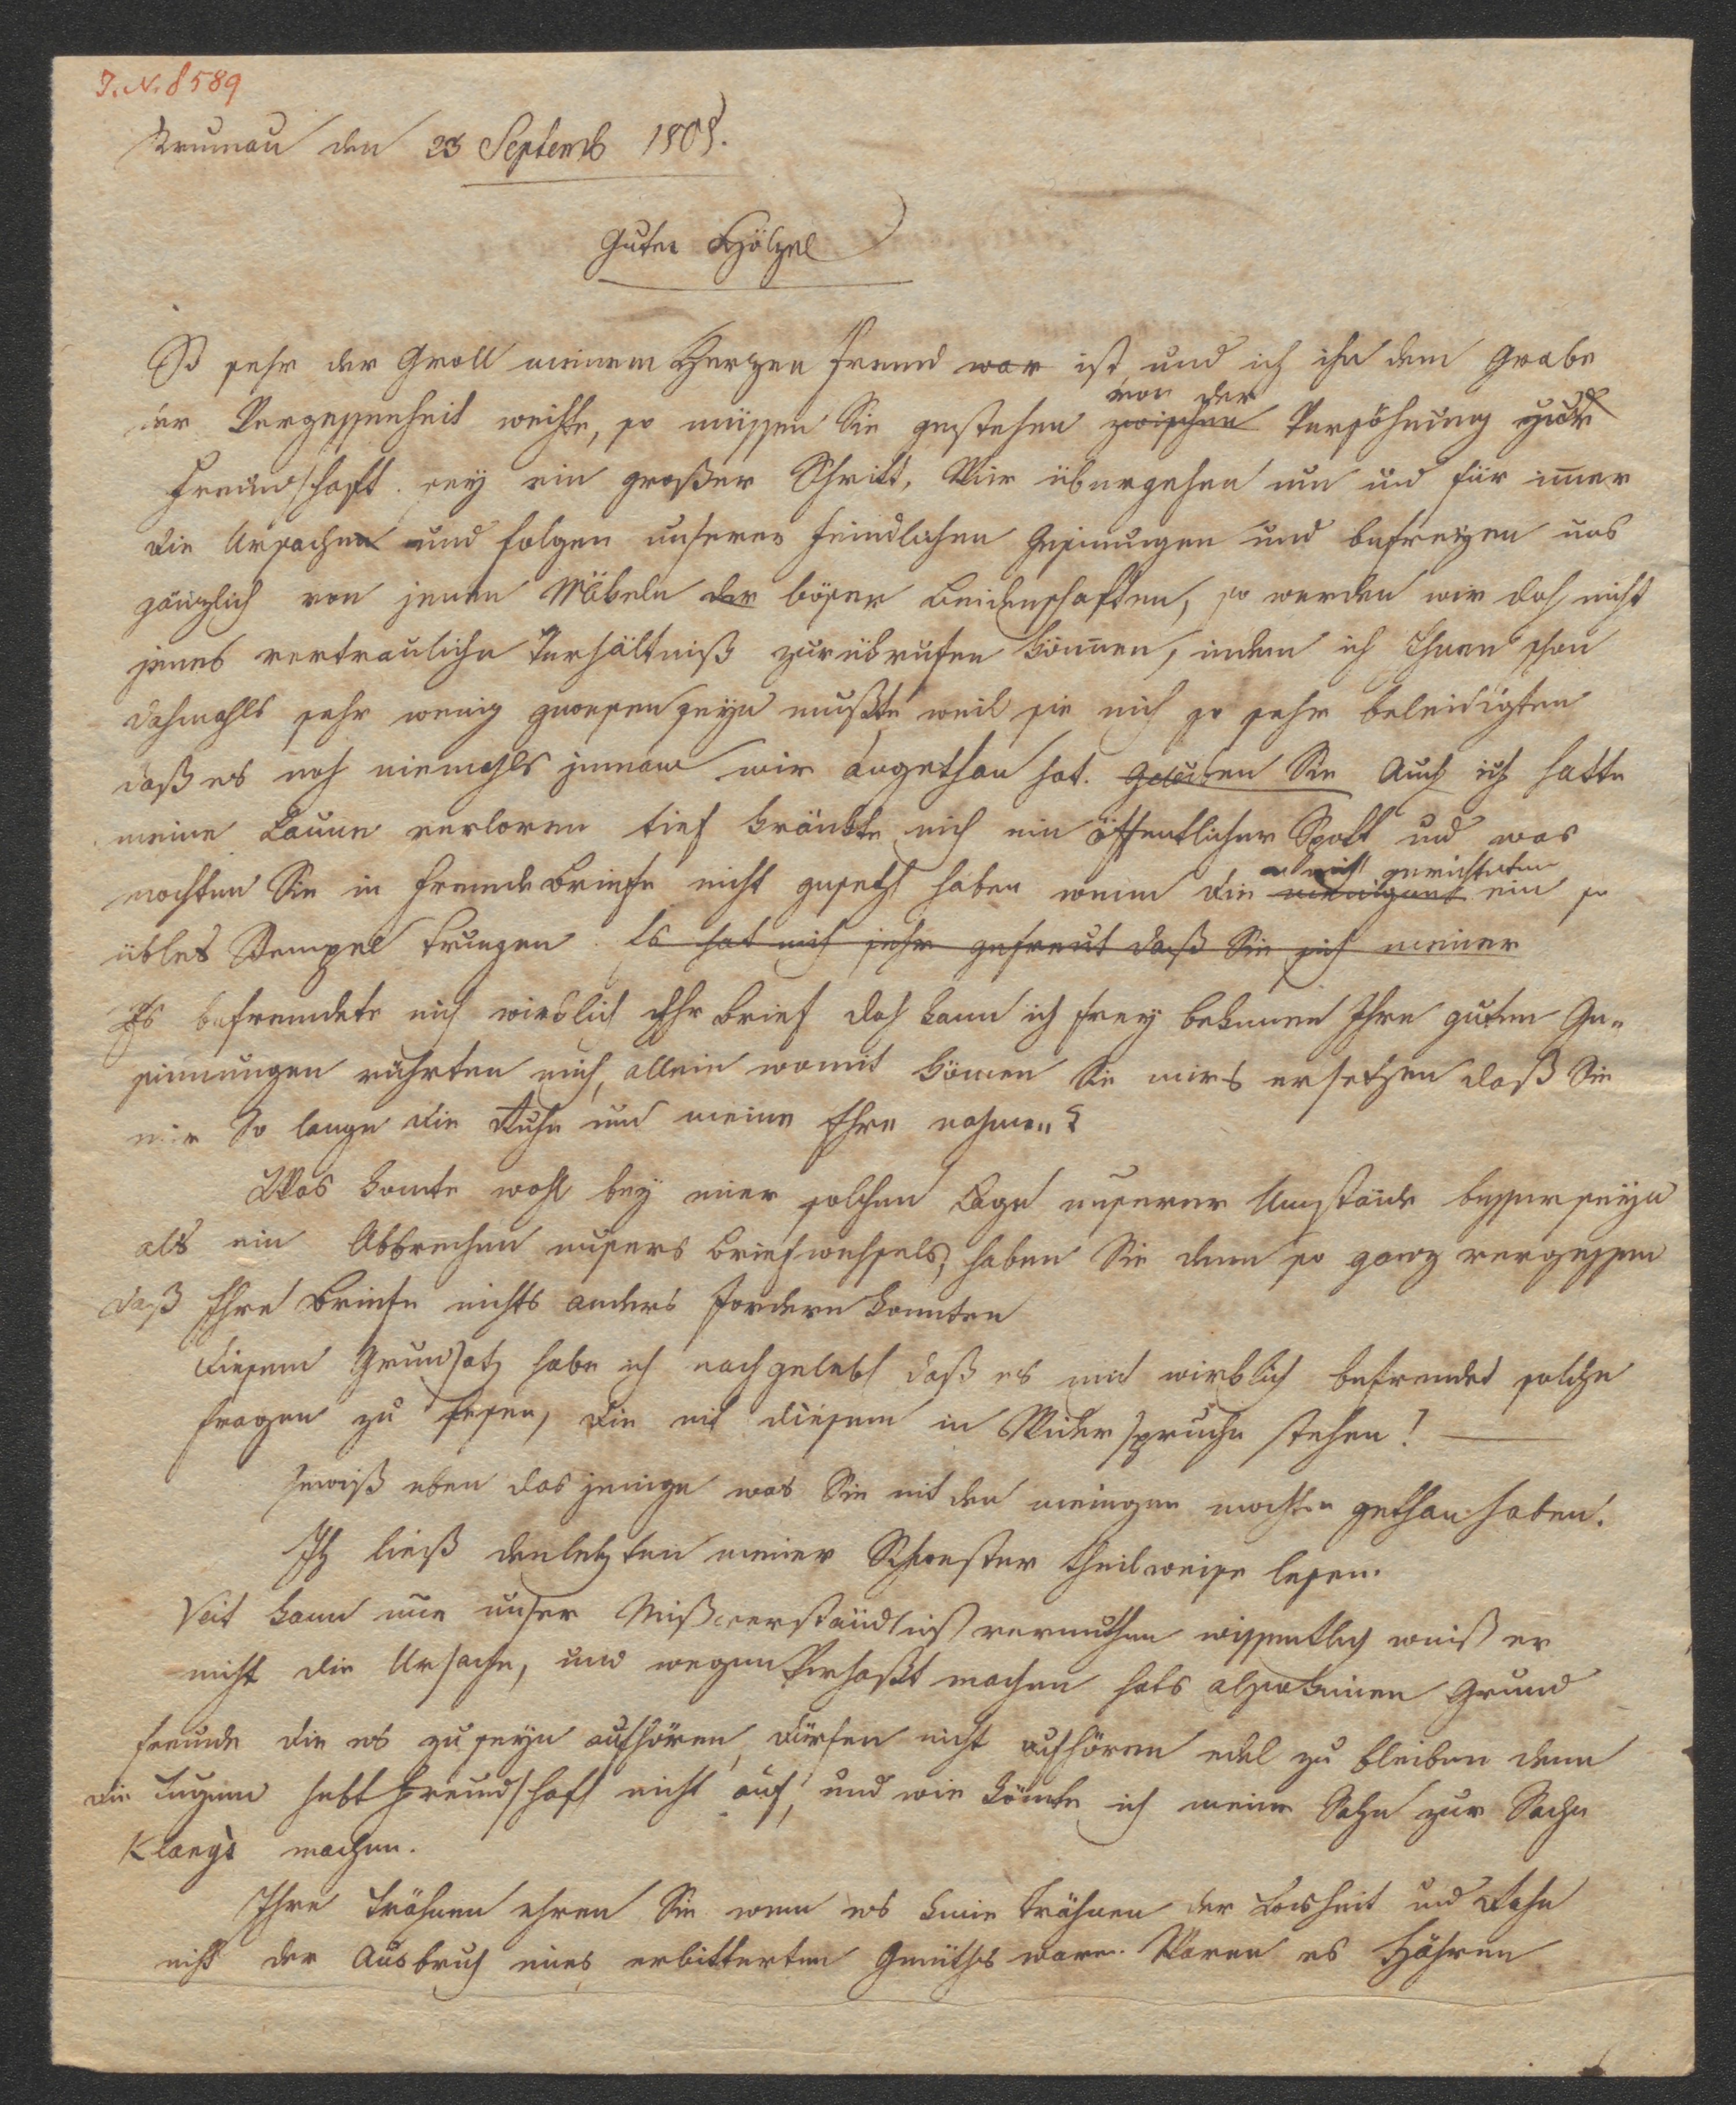 J. N. 8589
Krumau den 23 Septemb 1808.
Guter Hölzel
So sehr der Groll meinem Herzen fremd war ist, und ich ihn dem Grabe
der Vergessenheit weihte, so müssen Sie gestehen zwischen von der Versöhnung zur
Freundschaft sey ein großer Schritt. Wir übergehen nun und für immer
die Ursachen und Folgen unserer feindlichen Gesinnungen und befreyen uns
gänzlich von jenen Möbeln der böser Leidenschaften, so werden wir doch nicht
jenes vertrauliche Verhältniß zurükrufen können, indem ich Ihnen schon
dahmahls sehr wenig gewesen seyn mußte weil sie mich so sehr beleidigten
daß es noch niemahls jemand mir angethan hat. Glauben Sie Auch ich hatte
meine Laune verloren tief kränkte mich ein öffentlicher Spott und was
mochten Sie in fremde Briefe nicht gesetzt haben wenn die meinigen an mich gerichteten ein so
übles Stempel trugen. Es hat mich sehr gefreut daß Sie sich meiner
Es befremdete mich wirklich Ihr Brief doch kann ich frey bekennen Ihre guten Ge-
sinnungen rührten mich, allein womit können Sie mirs ersetzen daß Sie
mir so lange die Ruhe und meine Ehre nahmen?
Was konnte wohl bey einer solchen Lage unserer Umstände besser seyn
als ein Abbrechen unsers Briefwechsels, haben Sie denn so ganz vergessen
daß Ihre Briefe nichts anders fordern konnten
Diesem Grundsatz habe ich nachgelebt daß es mich wirklich befremdet solche
Fragen zu lesen, die mit diesem in Widerspruche stehen! —
Gewiß eben das jenige was Sie mit den meinigen mochten gethan haben.
Ich ließ den letzten meiner Schwester theilweise lesen.
Veit kann nur unser Mißverständniß vermuthen wissentlich weiß er
nicht die Ursache, und wegen Verhaßt machen hats also keinen Grund
Freunde die es zu seyn aufhören, dürfen nicht aufhören edel zu bleiben denn
die Tugend hebt Freundschaft nicht auf, und wie könnte ich meine Sache zur Sache
Klangs machen.
Ihre Trähnen ehren Sie wenn es keine Trähnen der Bosheit und Rache
nicht der Ausbruch eines erbitterten Gemüthes waren. Waren es Zähren